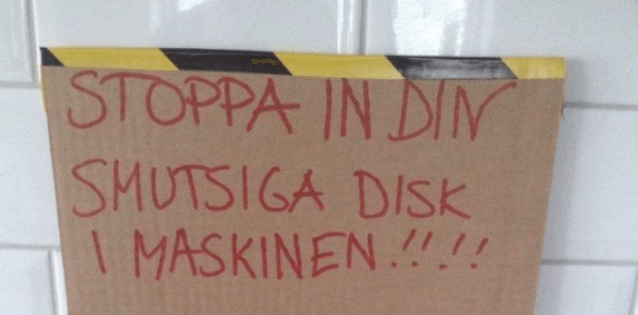 STOPPA IN DIN
SMUTSIGA DISK
I MASKINEN!!!!